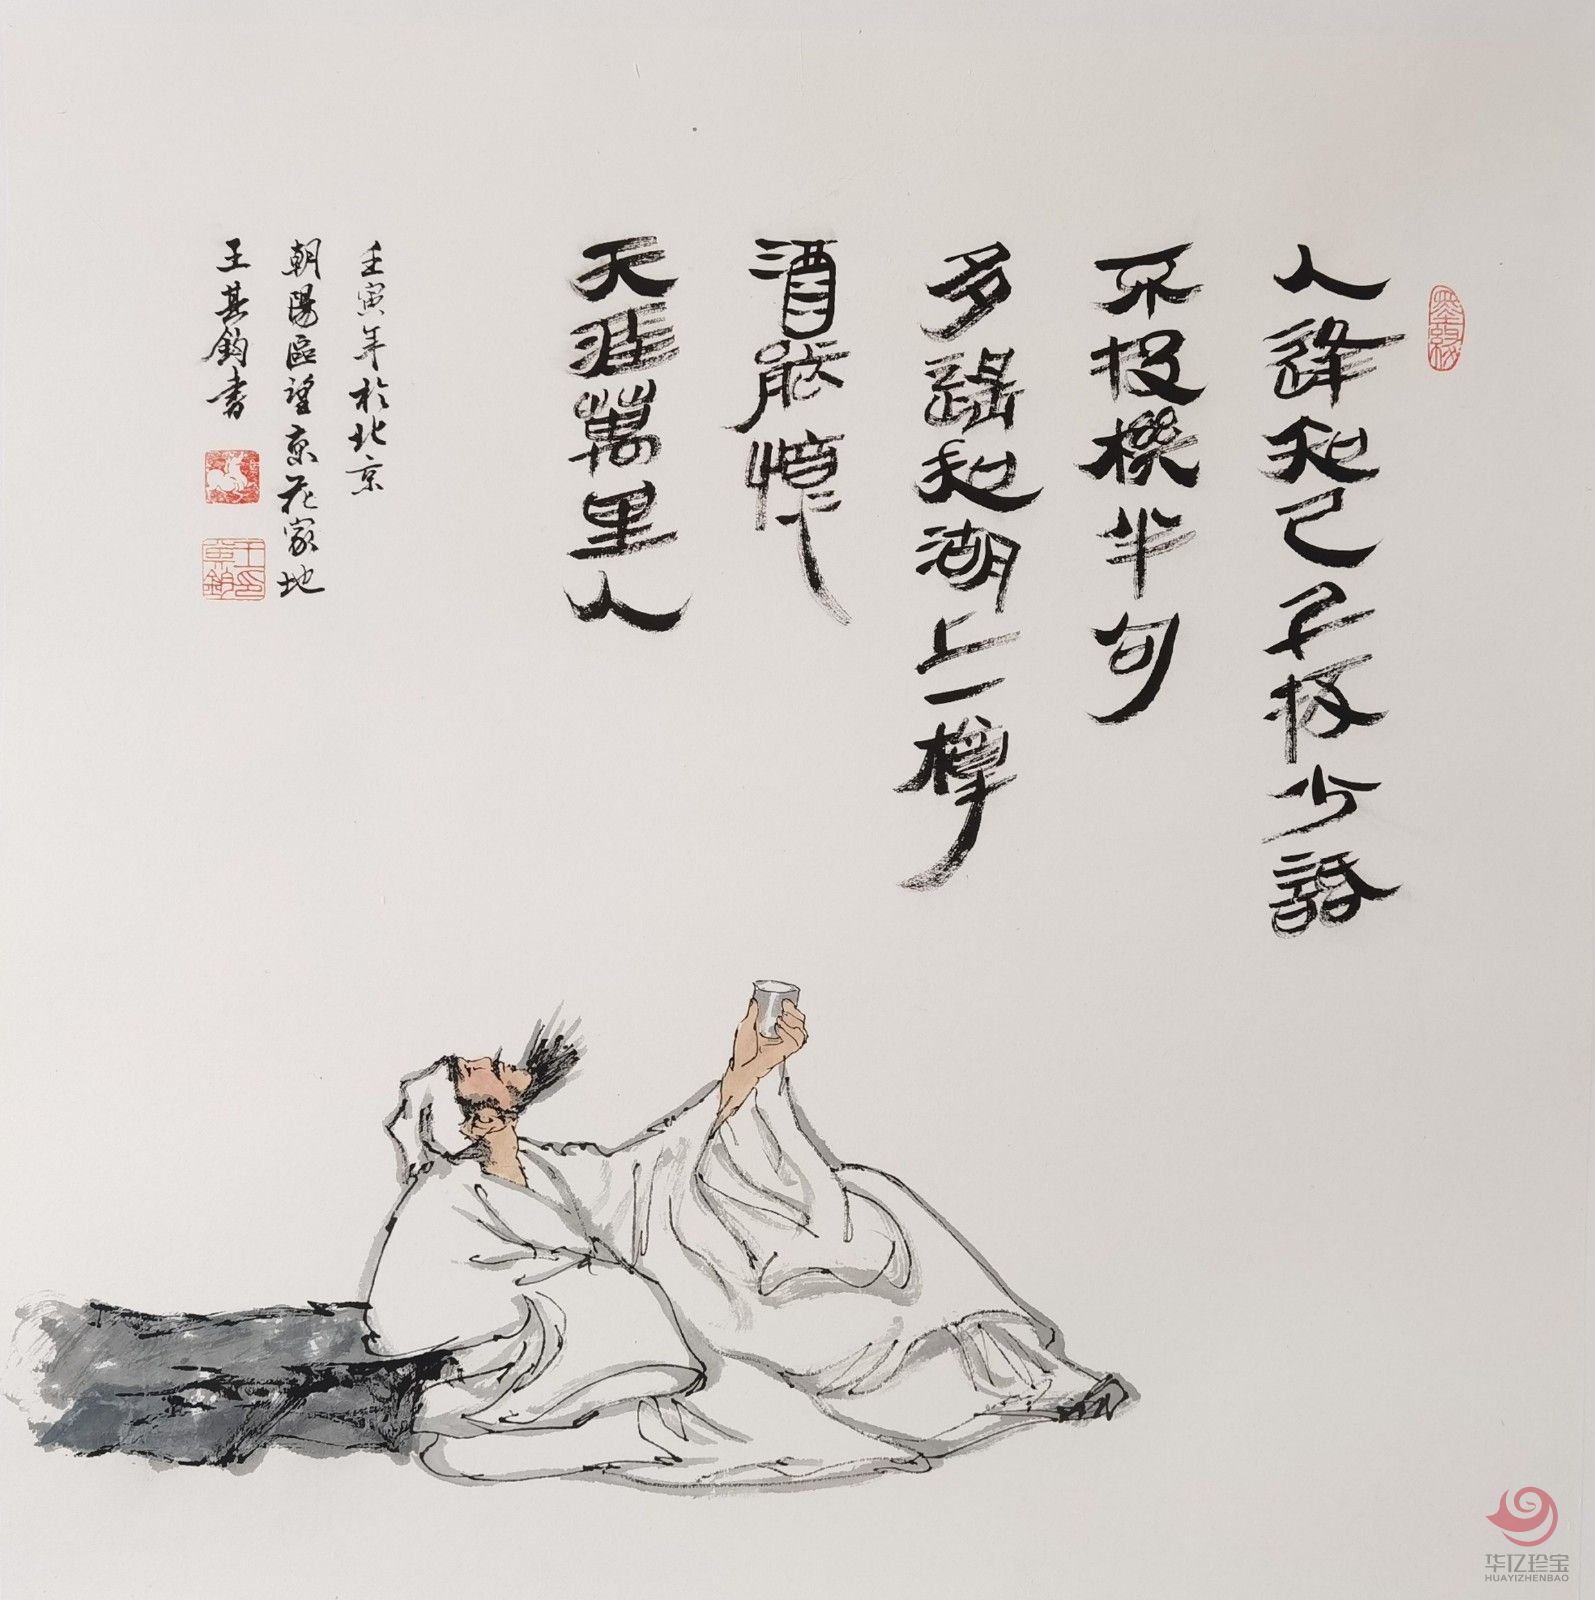 人逢知己千杯少話
不投機半句
多遙知湖上一樽
酒能憶
天涯萬里人
壬寅年於北京
朝陽區望京花家地
王其鈞書
王印其鈞
华亿珍宝
HUAYIZHENBAO